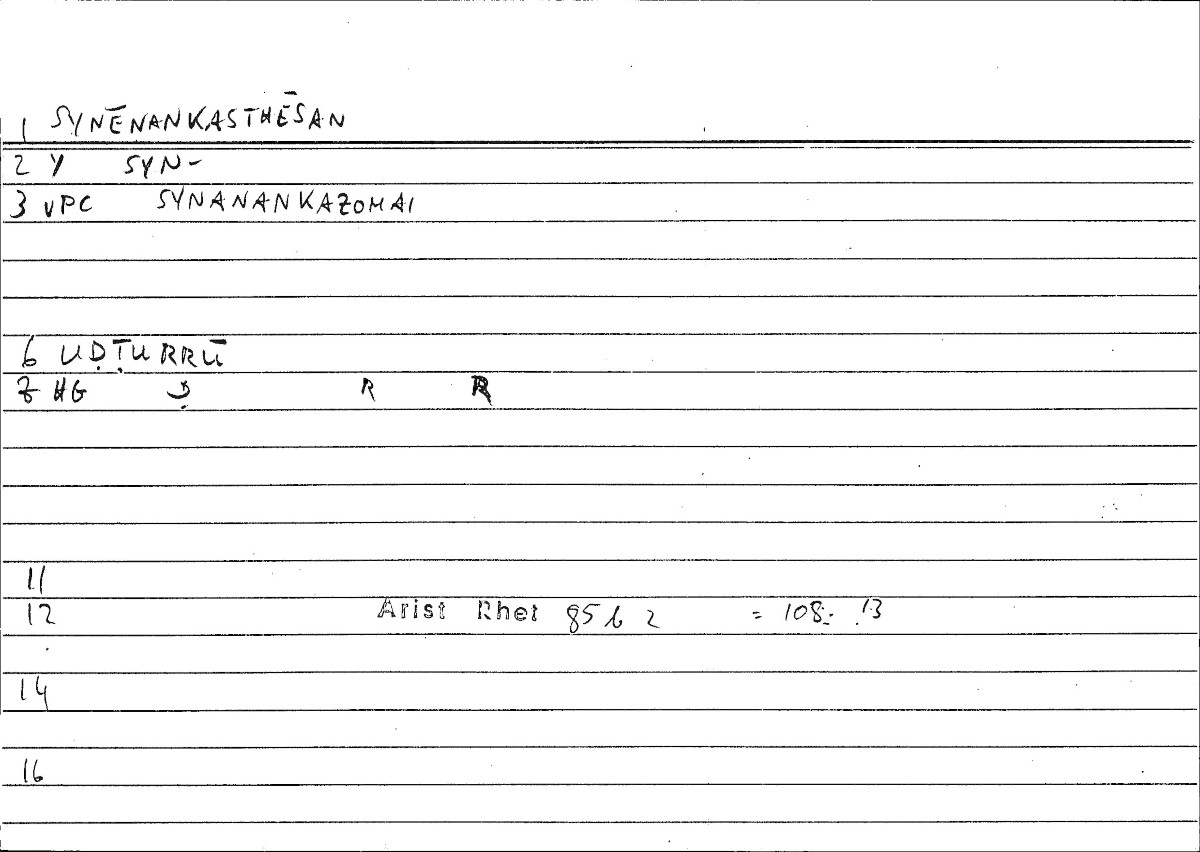 1 SYNĒNANKASTHĒSAN
2 Y SYN-
3 VPC SYNANANKAZOMAI
6 UḌṬURRŪ
7 HG R R
11
12 Arist Rhet 85b2 = 108. 13
14
16